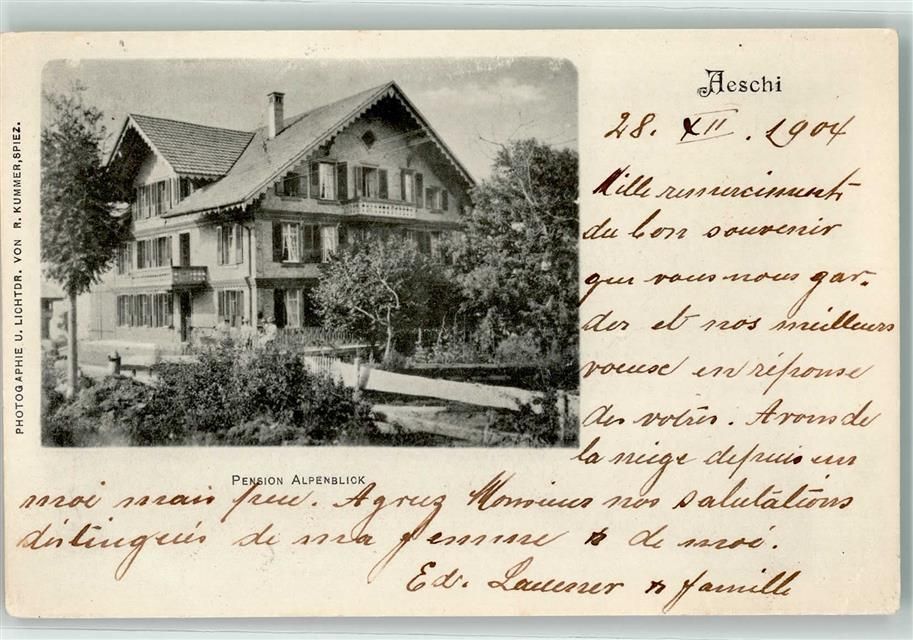 Aeschi
28. XII. 1904
Mille remerciments
du bon souvenir
que vous nous gar-
dez et nos meilleurs
voeux en réponse
des votres. Avons de
la neige depuis un
PENSION ALPENBLICK
moi mais peu. Agruz Monsieur nos salutations
distingués de ma femme & de moi.
Ed. Lauener & famille
PHOTOGAPHIE U. LICHTDR. VON R. KUMMER, SPIEZ.